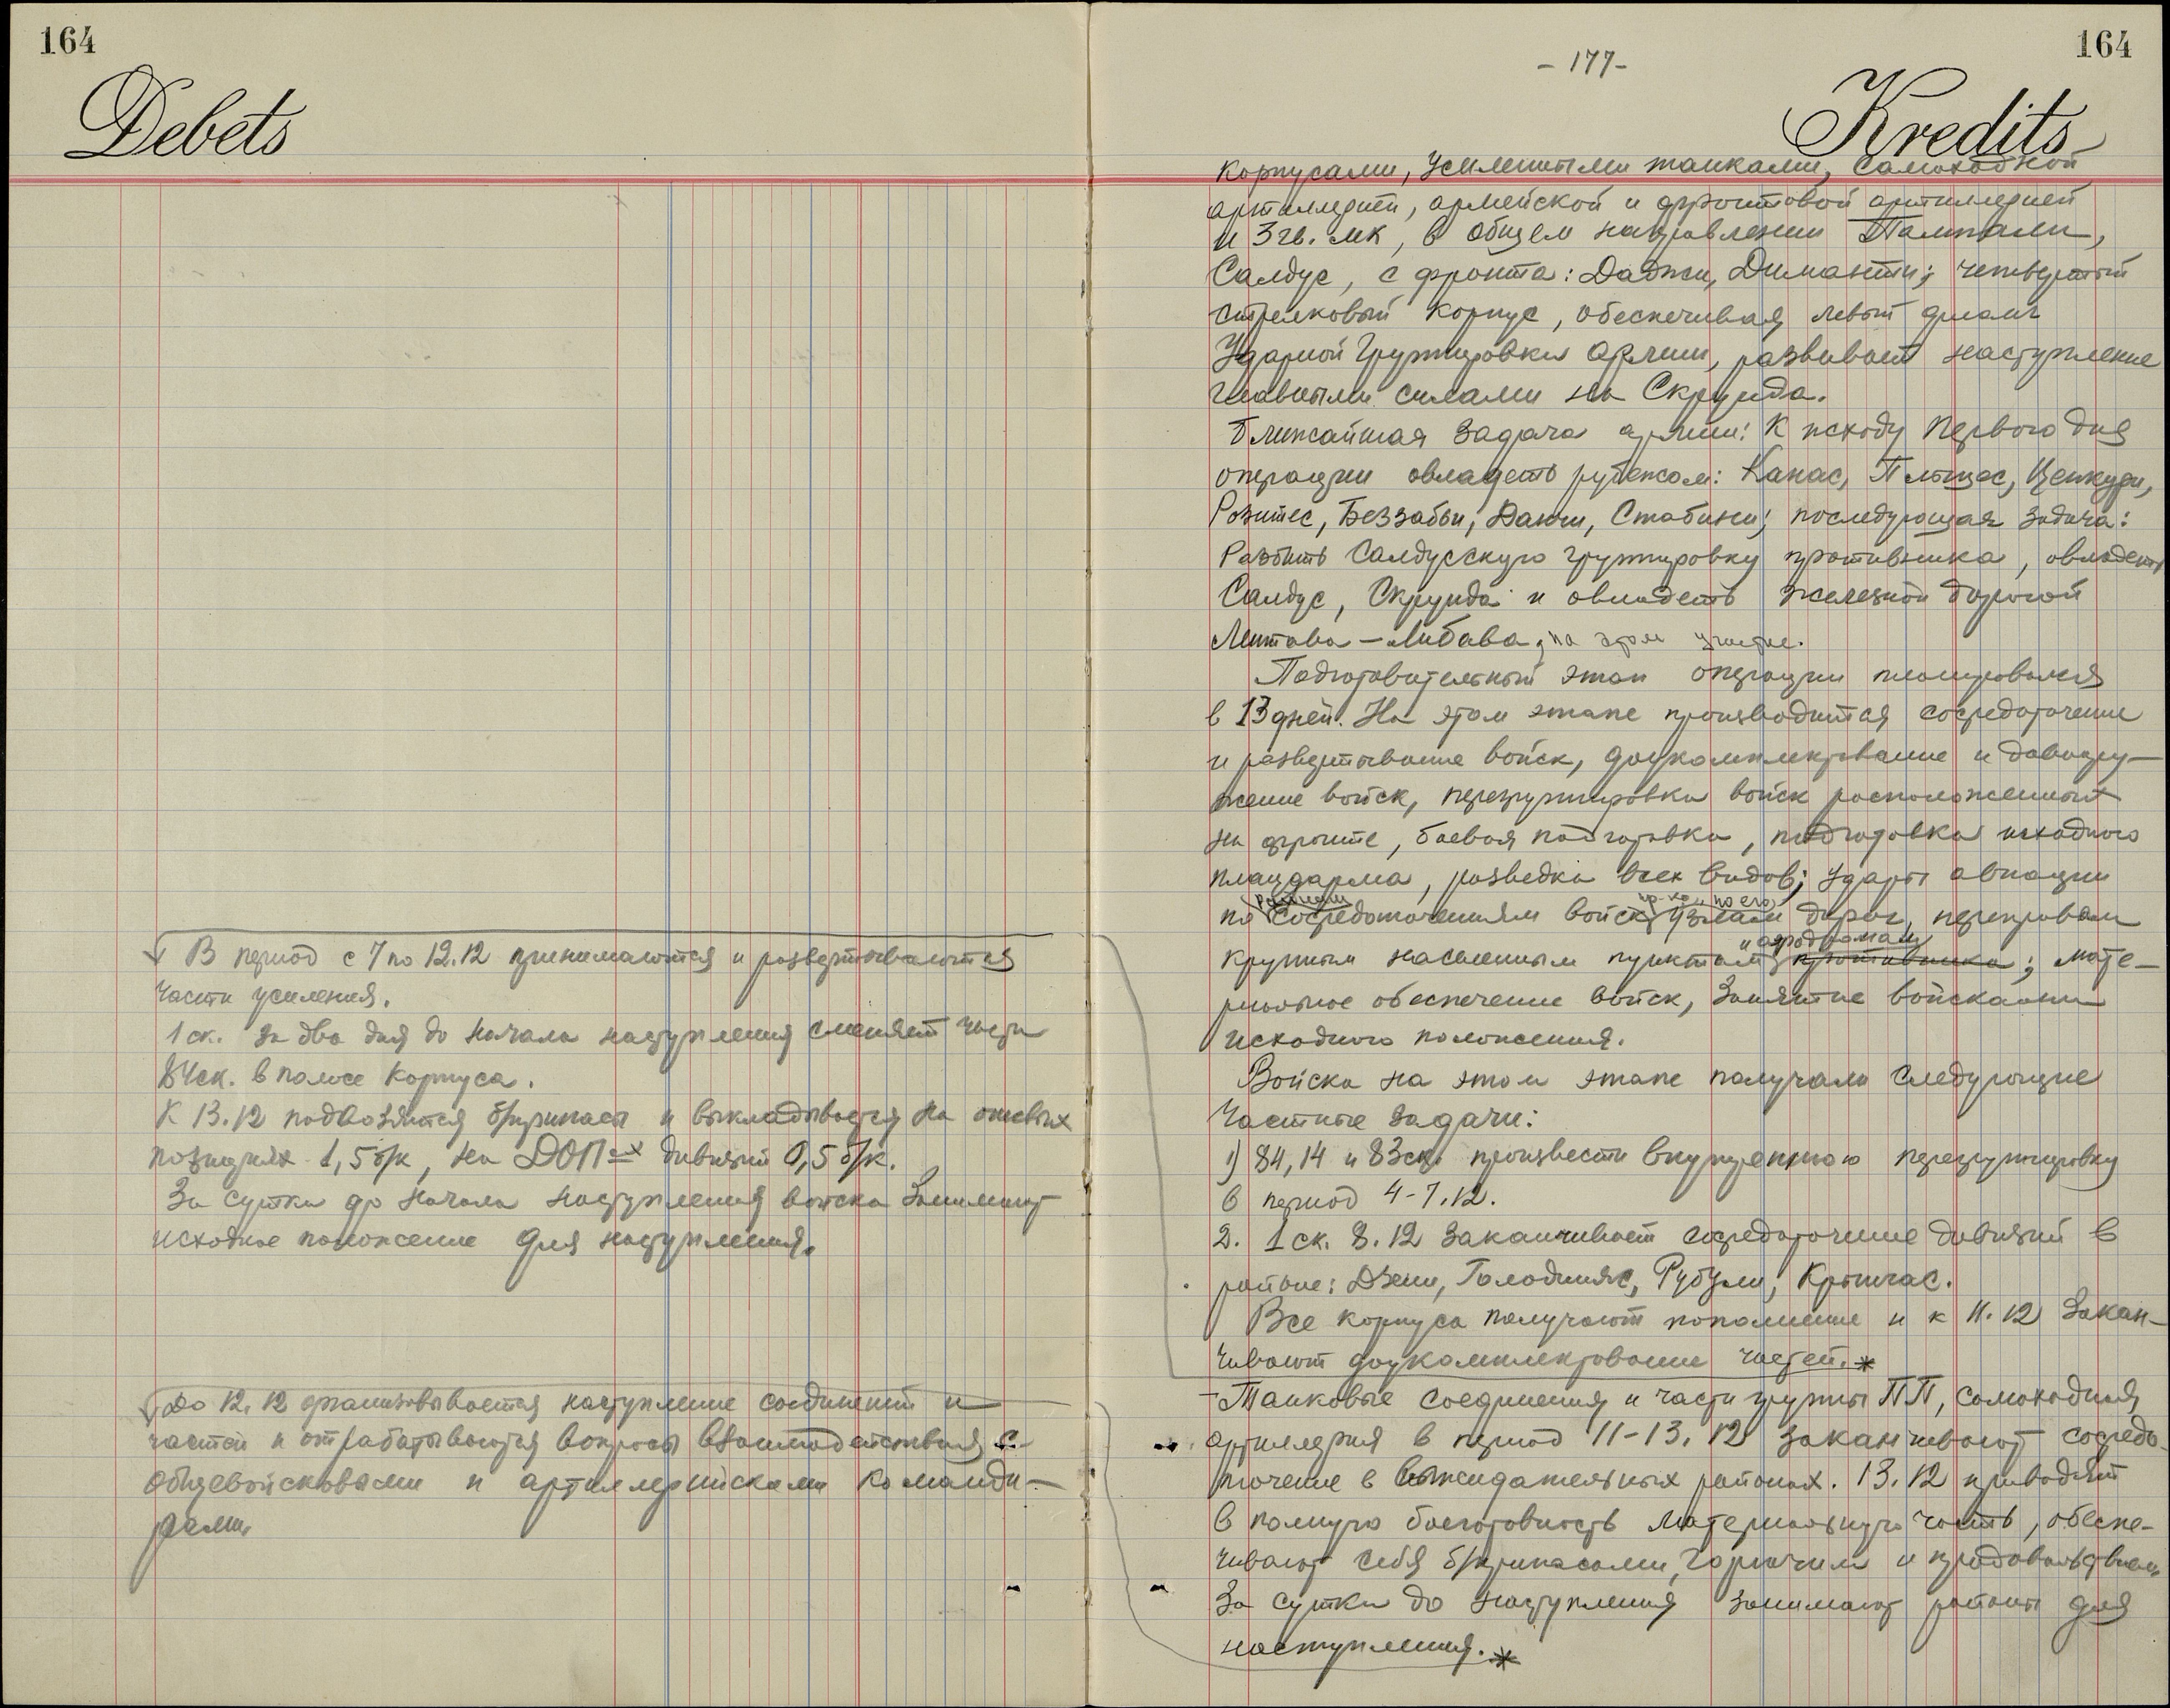 164
Debets
В период с 7 по 12.12 принимаются и развертываются
части усиления.
1 ск. за два дня до начала наступления сменяет части
84ск. в полосе корпуса.
К 13.12 подвозятся б/припасы и выкладывается на огневых
позициях 1,5 б/к, на ДОПах дивизий 0,5 б/к.
За сутки до начала наступления войска занимают
исходное положение для наступления.
До 12.12 организовывается наступление соединений и
частей и отрабатываются вопросы взаимодействия с
общевойсковыми и артиллерийскими команди-
рами.
164
- 177-
Kredits
корпусами, усиленными танками, самоходной
артиллерией, армейской и фронтовой артиллерией
и 3 гв. мк, в общем направлении Пампали,
Салдус, с фронта: Даджи, Диманти; четвертый
стрелковый корпус, обеспечивая левый фланг
ударной группировки армии, развивает наступление
главными силами на Скрунда.
Ближайшая задача армии: К исходу первого дня
операции овладеть рубежом: Канас, Ценкури,
Розитес, Беззабьи, Данчи, Стабини; последующая задача:
Разбить Салдусскую группировку противника, овладеть
Салдус, Скрунда и овладеть железной дорогой
Митава - Либава, на этом участке.
Подготовительный этап операции планировался
в 13 дней. На этом этапе производится сосредоточение
и развертывание войск, доукомплектование и довоору-
жение войск, перегруппировка войск расположенных
на фронте, боевая подготовка, подготовка исходного
плацдарма, разведка всех видов; удары авиации
по сосредоточениям войск пр-ка и по его узлам дорог, переправам
крупным населенным пунктам и аэродромам противника; мате-
риальное обеспечение войск, занятие войсками
исходного положения.
Войска на этом этапе получали следующие
частные задачи:
1) 84, 14 и 83ск. произвести внутреннюю перегруппировку
в период 4-7.12.
2. 1 ск. 8.12 заканчивает сосредоточение дивизий в
районе: Дзени, Голодникс, Рубули, Крышчас.
Все корпуса получают пополнение и к 11.12 закан-
чивают доукомплектование частей.*
-Танковые соединения и части группы ПП, самоходная
артиллерия в период 11-13.12 заканчивают сосредо-
точение в выжидательных районах. 13.12 приводят
в полную боеготовность материальную часть, обеспе-
чивают себя б/припасами, горючим и продовольствием.
За сутки до наступления занимают районы для
наступления.*